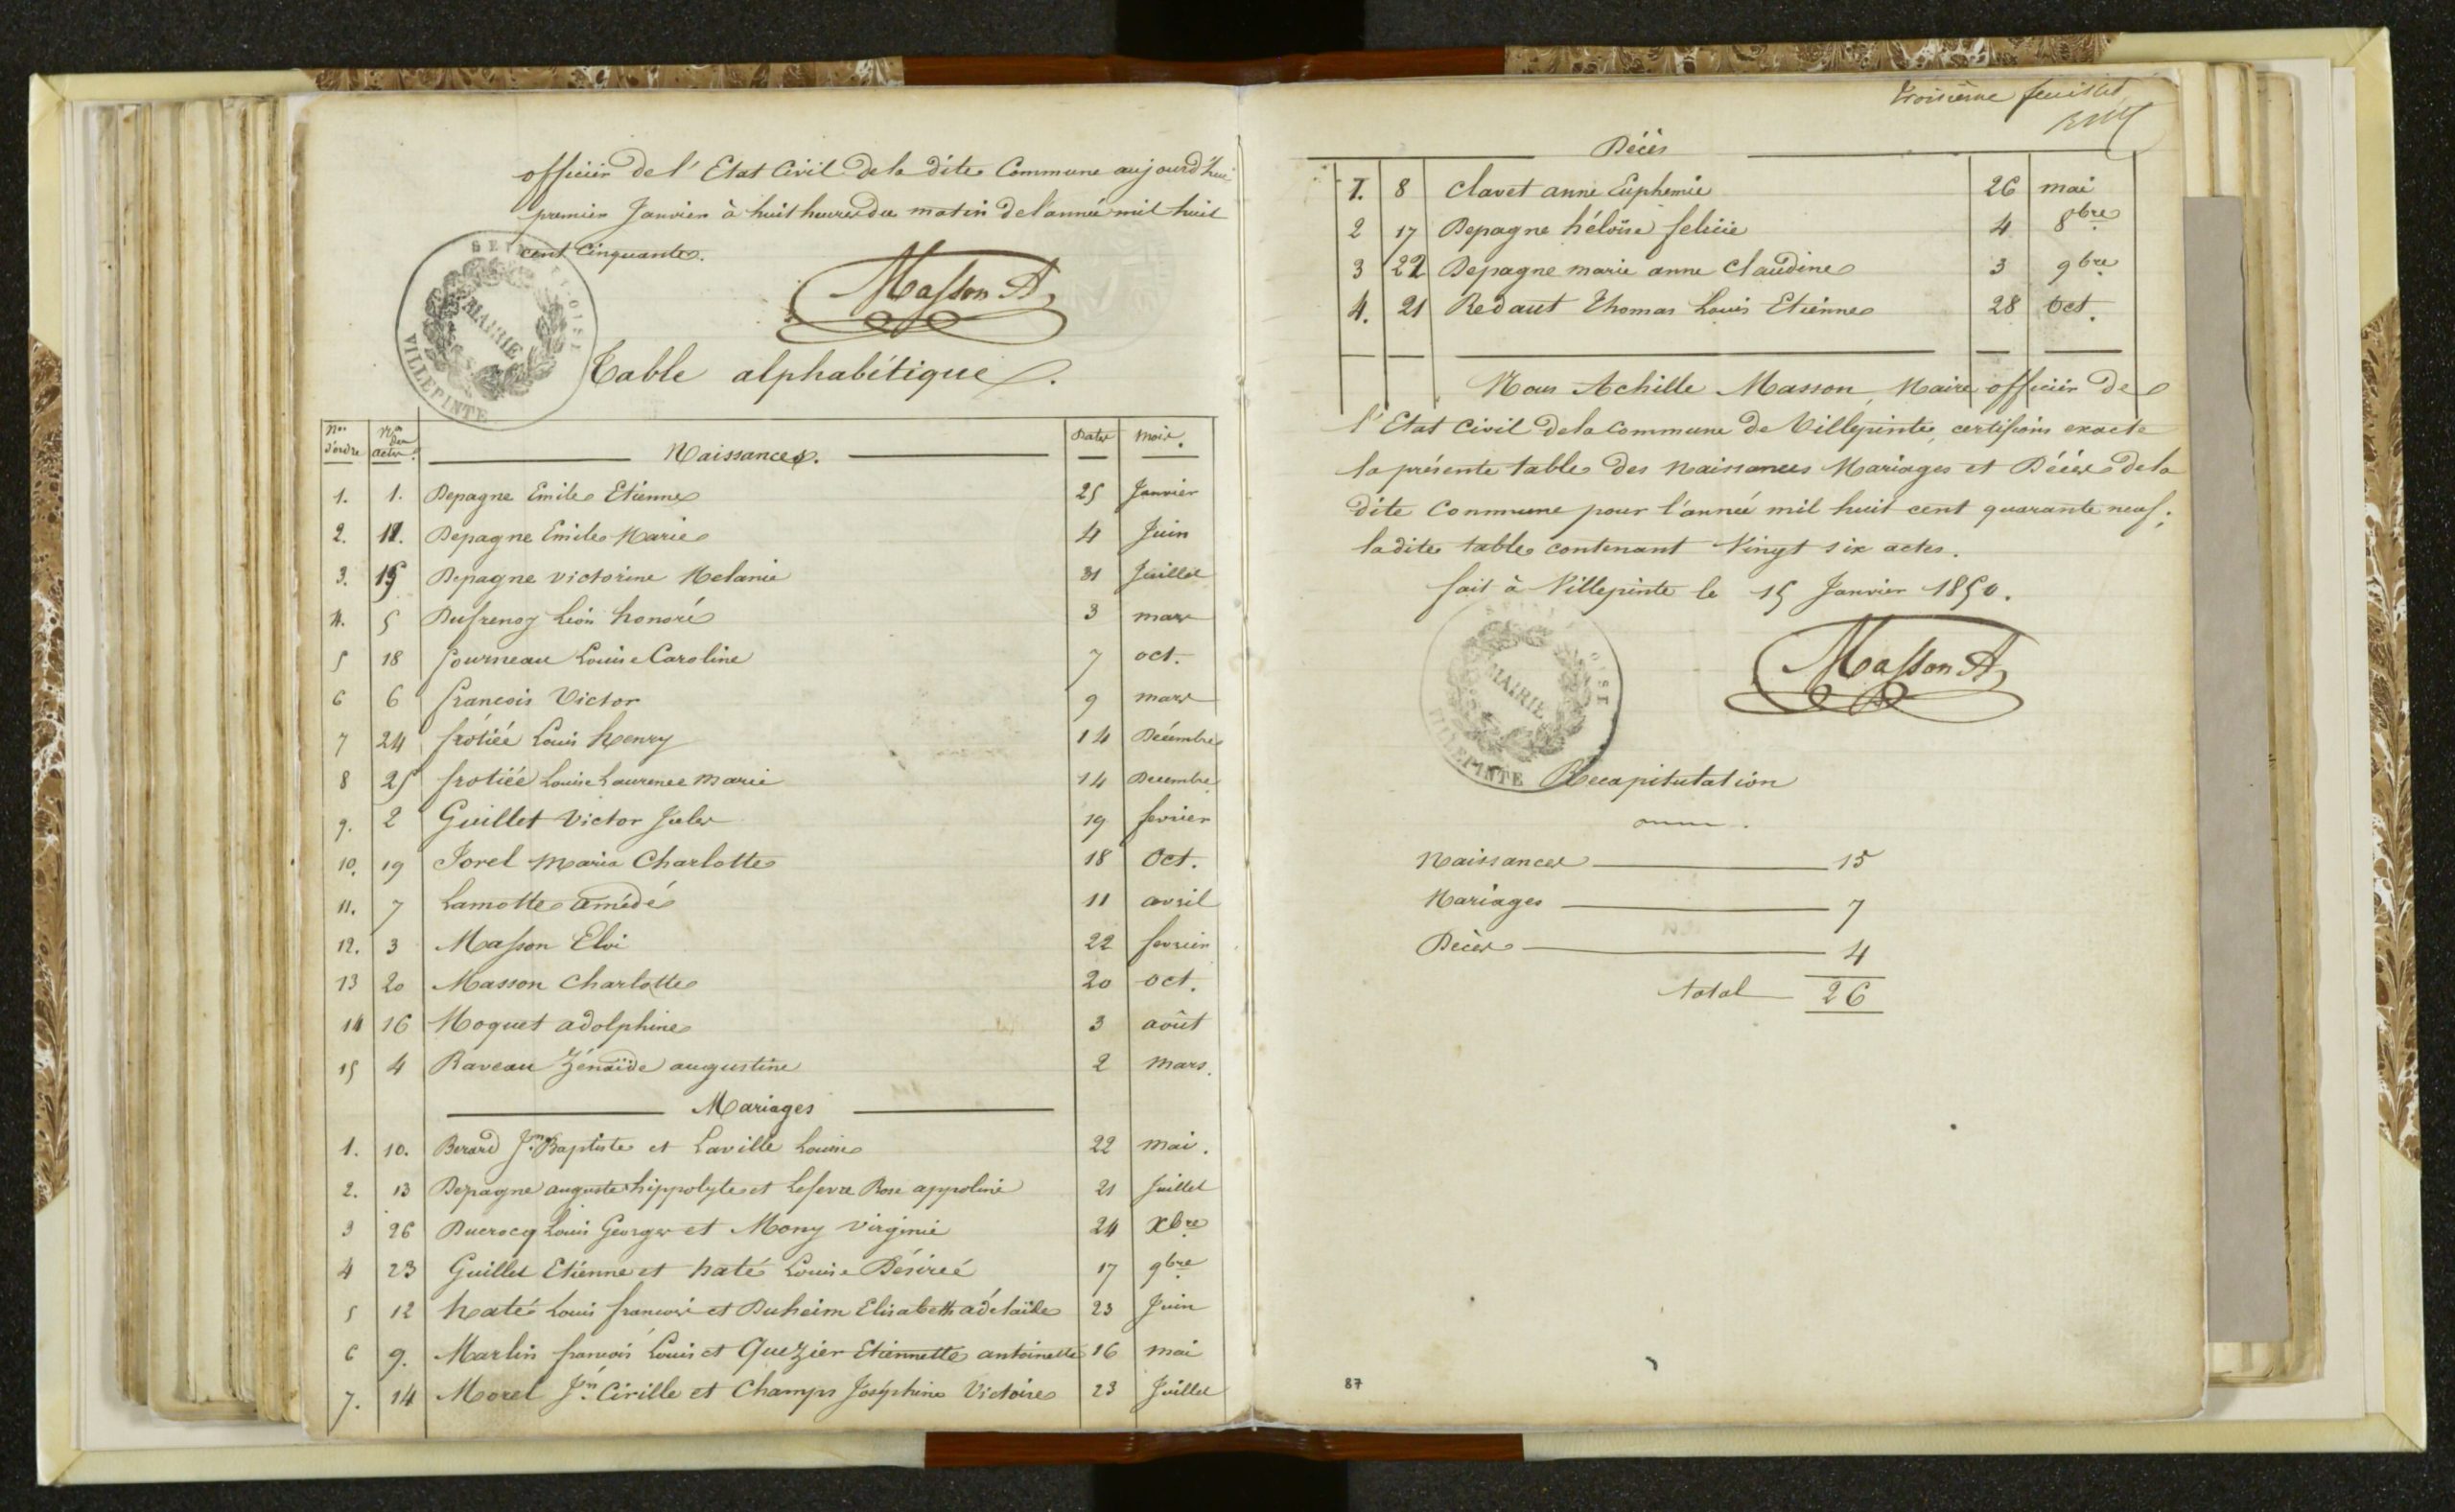 officier de l'Etat Civil de la dite Commune aujourd'hui
premier Janvier à huit heures du matin de l'année mil huit
cent Cinquante.
Masson A
MAIRIE
VILLEPINTE
Table alphabétique.
Nos d'ordre Nos des actes Naissances. Dates Mois.
1. 1. Depagne Emile Etienne 25 Janvier
2. 11. Depagne Emile Marie 4 Juin
3. 15 Depagne victorine Melanie 31 Juillet
4. 5 Dufrenoy Léon honoré 3 mars
5 18 fourneau Louise Caroline 7 oct.
6 6 francois Victor 9 mars
7 24 frotiée Louis henry 14 Décembre
8 25 frotiée Louise Laurence Marie 14 Decembre
9. 2 Guillet Victor Jules 19 fevrier
10. 19 Jorel Maria Charlotte 18 Oct.
11. 7 Lamotte amédé 11 avril
12. 3 Masson Eloi 22 fevrier
13 20 Masson Charlotte 20 oct.
14 16 Moquet adolphine 3 août
15 4 Raveau Zénaïde augustine 2 Mars.
Mariages
1. 10. Berard Jn Baptiste et Laville Louise 22 mai.
2. 13 Depagne auguste hippolyte et Lefevre Rose appoline 21 Juillet
3 26 Ducrocq Louis Georges et Mony virginie 24 Xbre
4 23 Guillet Etienne et haté Louise Désireé 17 9bre
5 12 haté Louis francois et Duheim Elisabeth adelaïde 23 Juin
6 9. Marlin francois Louis et Quezier Etiennette antoinette 16 mai
7. 14 Morel Jn Cirille et Champs Joséphine Victoire 23 Juillet
troisième feuillet
Décès
1. 8 Clavet anne Euphemie 26 mai
2 17 Depagne héloïse felicie 4 8bre
3 22 Depagne marie anne Claudine 3 9bre
4. 21 Redaut Thomas Louis Etienne 28 Oct.
Nous Achille Masson, Maire officier de
l'Etat Civil de la Commune de Villepinte, certifions exacte
la présente table des Naissances Mariages et Décès de la
dite Commune pour l'année mil huit cent quarante neuf;
la dite table contenant Vingt six actes.
fait à Villepinte le 15 Janvier 1850.
Masson A
MAIRIE
VILLEPINTE
Recapitulation
Naissances 15
Mariages 7
Décès 4
total 26
87